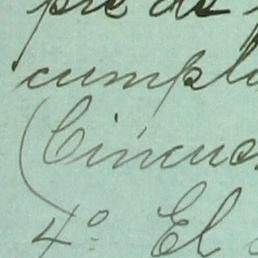 pre de
cumpl
(Cincuo
4º El